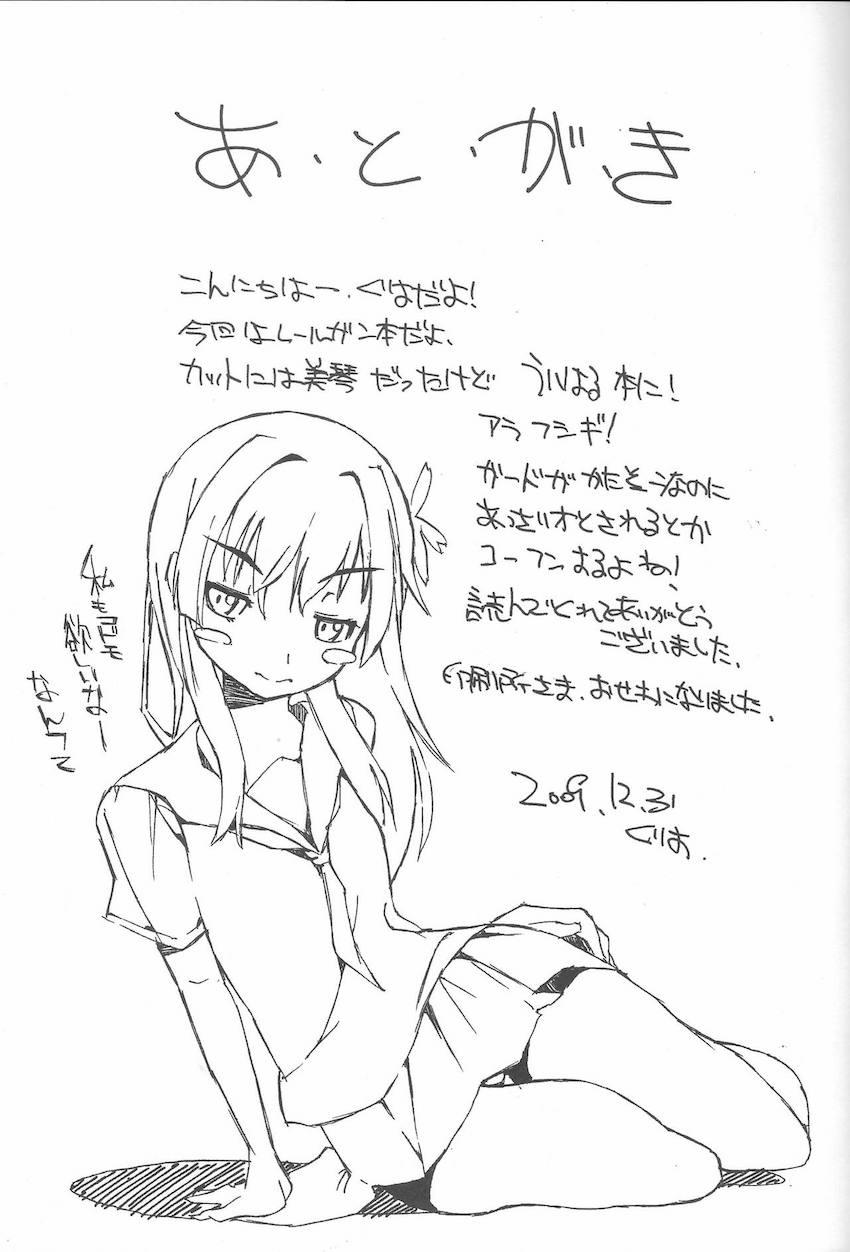 あ・と・が・き
こんにちはー、ぐりはだよ!
今回はレールガン本だよ、
カットには美琴だったけど ういはる本に!
アラフシギ!
ガードがかたそーなのに
あっさりオとされるとか
コーフンするよね!
読んでくれてありがとう
ございました、
印刷所さま、おせわになりました、
2009.12.31
ぐりは.
私も
欲しいなー
なんつて